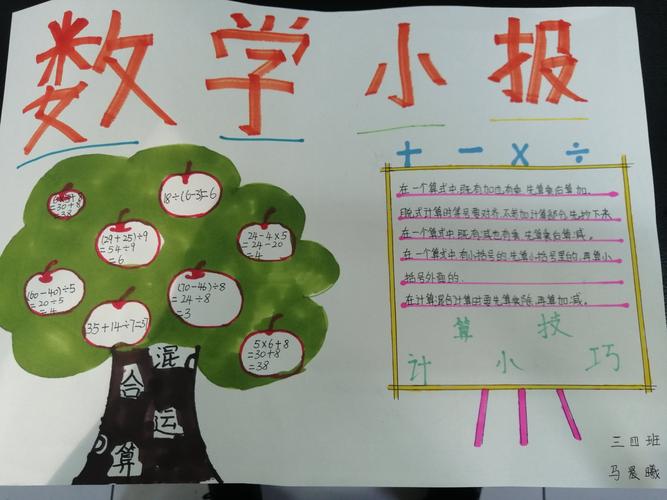 数学小报
+ - × ÷
=30+8
=38
18÷(6-3)=6
(29+25)÷9
=54÷9
=6
24-4×5
=24-20
=4
(60-40)÷5
=20÷5
=4
(70-46)÷8
=24÷8
=3
35+14÷7=37
5×6+8
=30+8
=38
混合运算
在一个算式中,既有加也有乘,先算乘再算加。
脱式计算时等号要对齐,不参加计算部分先抄下来
在一个算式中,既有减也有乘,先算乘再算减。
在一个算式中,有小括号的,先算小括号里的,再算小
括号外面的.
在计算混合计算时要先算乘除,再算加减。
计算小技巧
三四班
马晨曦